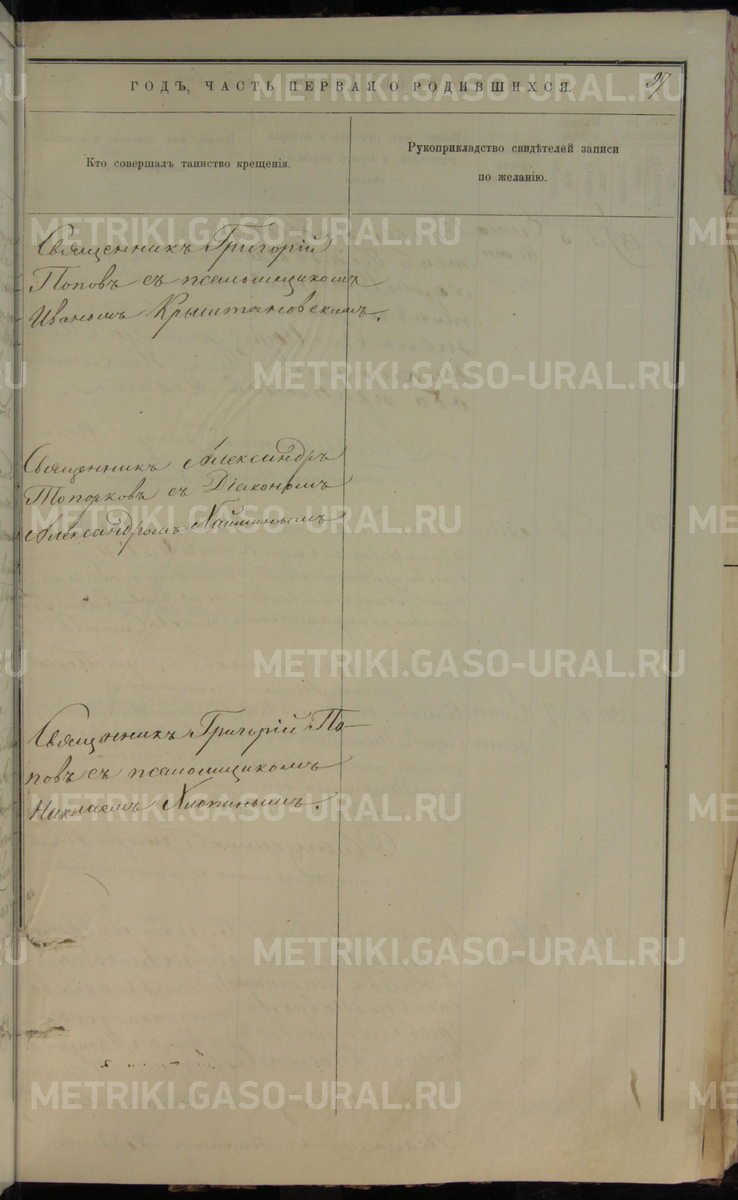 ГОДЪ, ЧАСТЬ ПЕРВАЯ О РОДИВШИХСЯ.
97
Кто совершалъ таинство крещенія.
Рукоприкладство свидѣтелей записи
по желанію.
Священникъ Григорій
Поповъ съ псаломщикомъ
Иваномъ Крыштановскимъ.
Священникъ Александръ
Топорковъ съ Діакономъ
Александромъ
Священникъ Григорій По-
повъ съ псаломщикомъ
Хлопинымъ.
METRIKI.GASO-URAL.RU